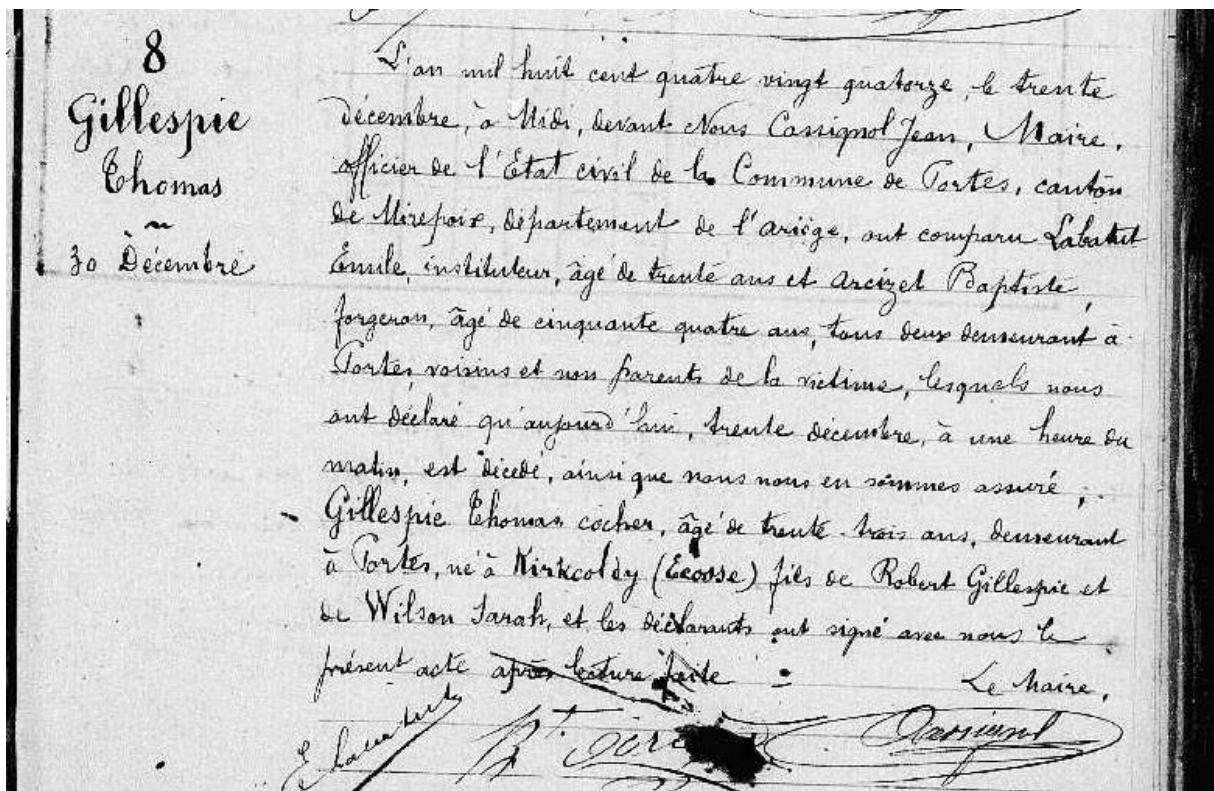 8
Gillespie
Thomas
30 Décembre
L'an mil huit cent quatre vingt quatorze, le trente
décembre, à Midi, devant Nous Cassignol Jean, Maire,
officier de l'État civil de la Commune de Tortes, canton
de Mirepoix, département de l'Ariège, ont comparu Labatut
Emile, instituteur, âgé de trente ans et Arcizet Baptiste,
forgeron, âgé de cinquante quatre ans, tous deux demeurant à
Portes, voisins et non parents de la victime, lesquels nous
ont déclaré qu'aujourd'hui, trente décembre, à une heure du
matin, est décédé, ainsi que nous nous en sommes assuré,
Gillespie Thomas cocher, âgé de trente-trois ans, demeurant
à Portes, né à Kirkcoldy (Ecosse) fils de Robert Gillespie et
de Wilson Sarah, et les déclarants ont signé avec nous le
présent acte après lecture faite
Le Maire,
E Labatut
Bt
Cassignol